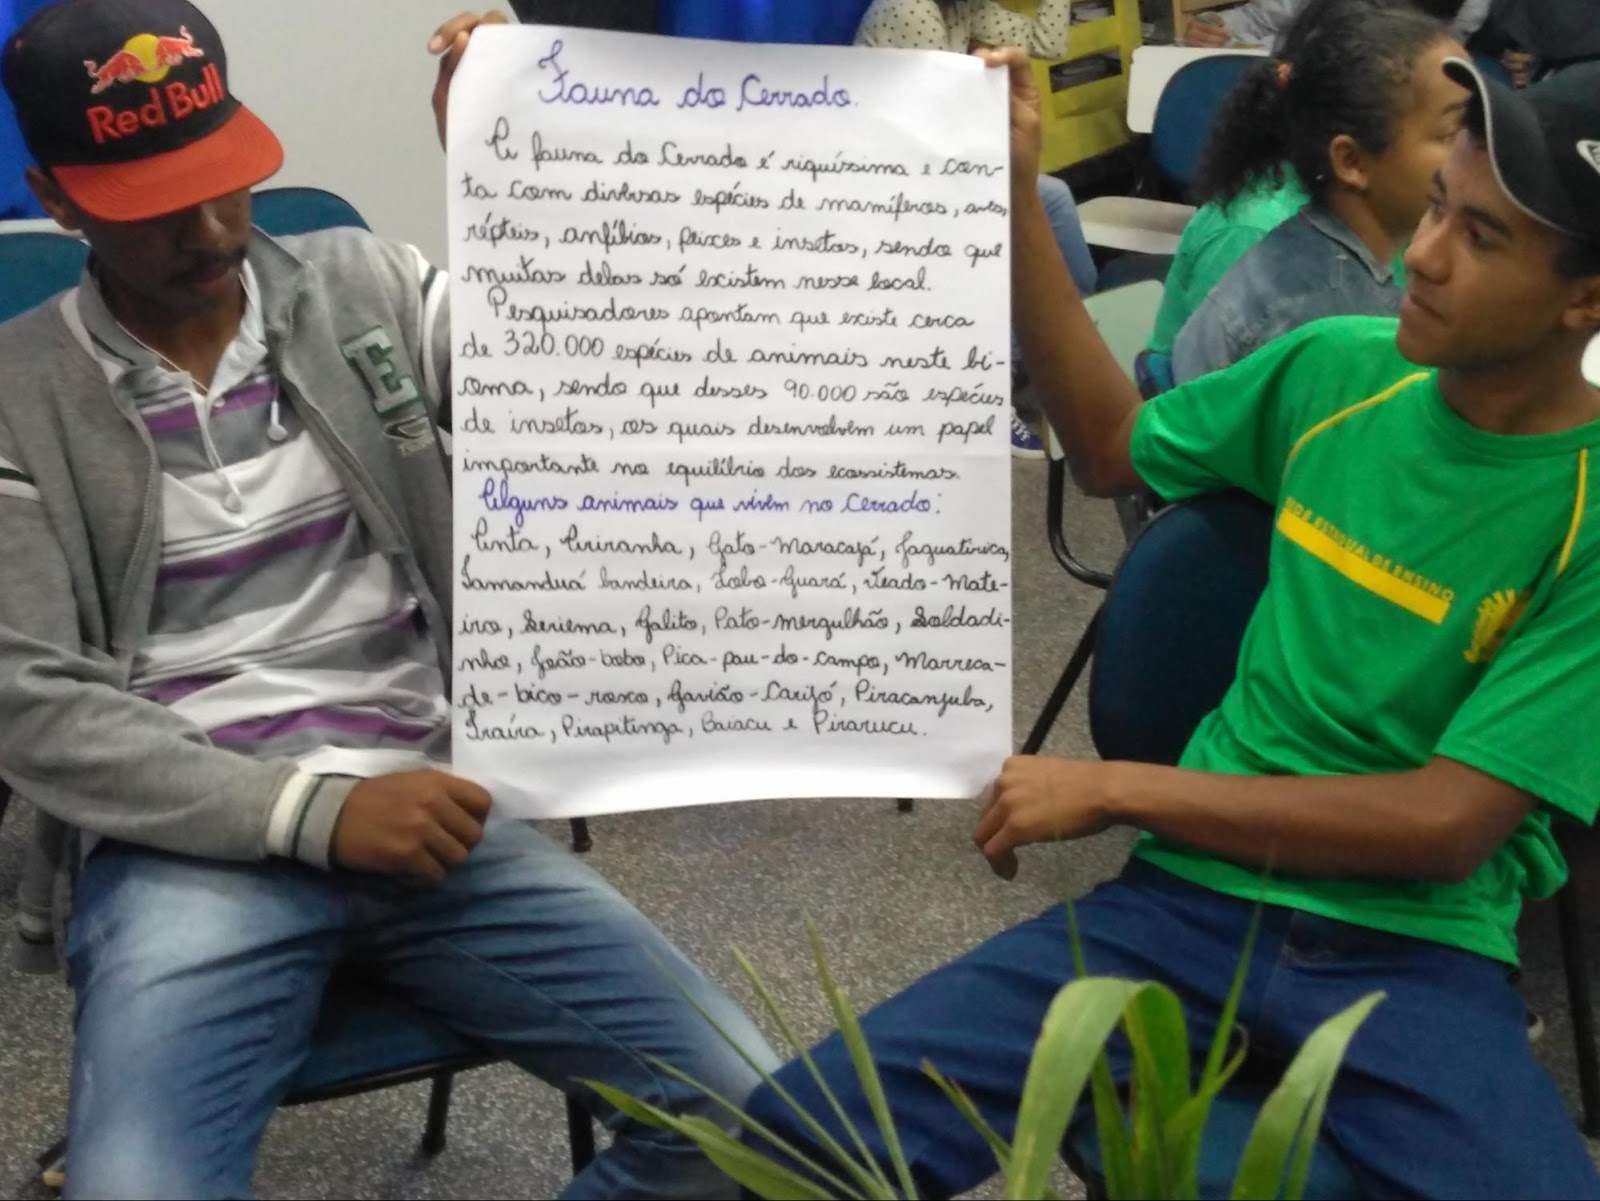 Red Bull
Fauna do Cerrado.
A fauna do Cerrado é riquíssima e con-
ta com diversas espécies de mamíferos, aves,
répteis, anfíbios, peixes e insetos, sendo que
muitas delas só existem nesse local.
Pesquisadores apontam que existe cerca
de 320.000 espécies de animais neste bi-
oma, sendo que desses 90.000 são espécies
de insetos, os quais desenvolvem um papel
importante no equilíbrio dos ecossistemas.
Alguns animais que vivem no Cerrado:
Anta, Ariranha, Gato-Maracajá, Jaguatirica,
Tamanduá bandeira, Lobo-Guará, Veado-Mate-
iro, Seriema, Galito, Pato-mergulhão, Soldadi-
nho, João-bobo, Pica-pau-do-campo, Marreca-
de-bico-roxo, Gavião-Carijó, Piracanjuba,
Traíra, Pirapitinga, Baiacu e Pirarucu.
E
REDE ESTADUAL DE ENSINO